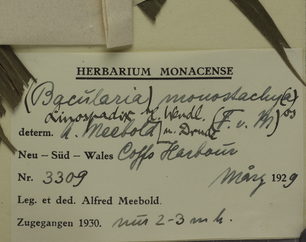 HERBARIUM MONACENSE
(Bacularia) monostachy(a)os
Linospadix H. Wendl. (F. v. M.)
determ. A. Meebold u. Drude
Neu – Süd – Wales Coffs Harbour
Nr. 3309 März 1929
Leg. et ded. Alfred Meebold.
Zugegangen 1930. nur 2-3 m h.